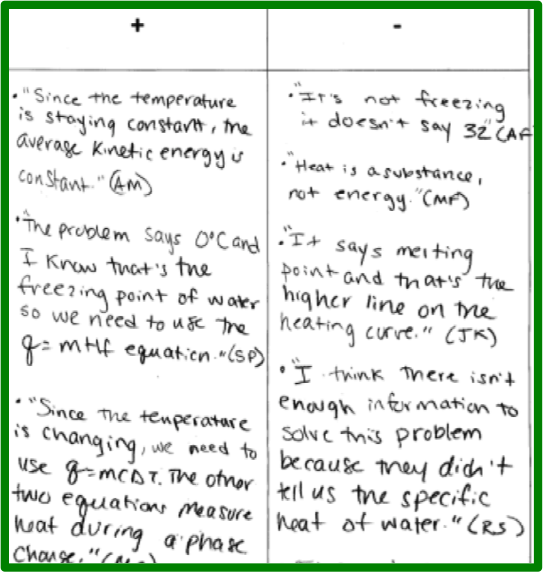 +
-
• "Since the temperature
is staying constant, the
average kinetic energy is
constant." (AM)
• "The problem says 0°C and
I know that's the
freezing point of water
so we need to use the
q = mHf equation." (SP)
• "Since the temperature
is changing, we need to
use q=mCΔT. The other
two equations measure
heat during a phase
change."
• "It's not freezing
it doesn't say 32" (AF)
• "Heat is a substance,
not energy." (MF)
• "It says melting
point and that's the
higher line on the
heating curve." (JK)
• "I think there isn't
enough information to
solve this problem
because they didn't
tell us the specific
heat of water." (RS)